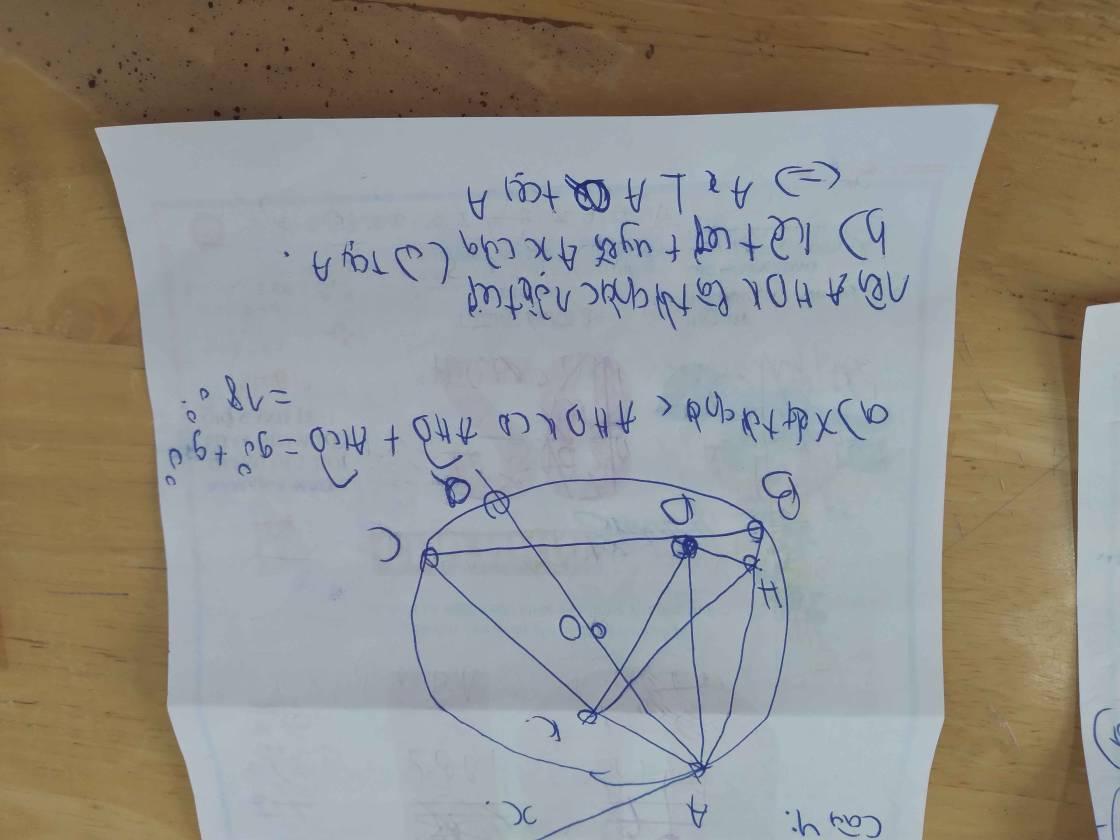 Câu 4:
A
x
K
O
H
D
B
C
Q
a) Xét tứ giác AHDK có AHD + AKD = 90° + 90°
= 180°
nên AHDK là tứ giác nội tiếp
b) kẻ tiếp tuyến Ax của () tại A.
(=) Ax ⊥ A tại A